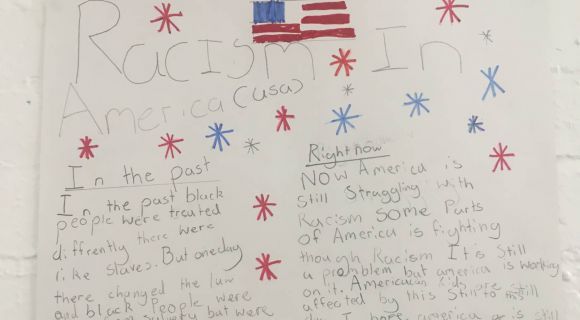 Racism In
America (usa)
In the past
In the past black
people were treated
diffrently there were
like slaves. But one day
there changed the luw
and black People were
but were
Right now
Now America is
Still Straggling with
Racism Some Parts
of America is fighting
though Racism It's Still
a problem but america is working
on it. Americaun kids are still
affected by this Still to this
I hope america or is still